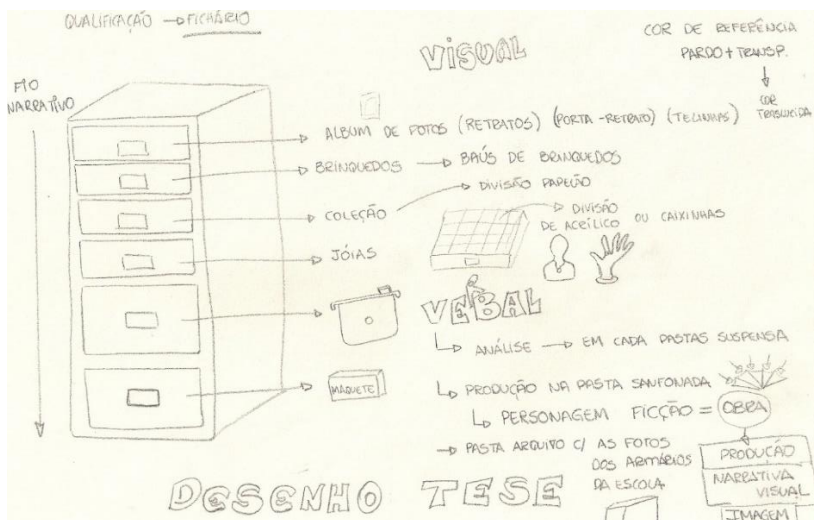 QUALIFICAÇÃO → FICHÁRIO
VISUAL
COR DE REFERÊNCIA
PARDO + TRANSP.
COR
TRANSLUCIDA
FIO
NARRATIVO
ALBUM DE FOTOS (RETRATOS) (PORTA-RETRATO) (TELINHAS)
BRINQUEDOS → BAÚS DE BRINQUEDOS
DIVISÃO PAPELÃO
COLEÇÃO
DIVISÃO
DE ACRÍLICO OU CAIXINHAS
JÓIAS
VEBAL
ANÁLISE → EM CADA PASTAS SUSPENSA
MAQUETE
PRODUÇÃO NA PASTA SANFONADA
PERSONAGEM FICÇÃO = OBRA
→ PASTA ARQUIVO C/ AS FOTOS
DOS ARMÁRIOS
DA ESCOLA
PRODUÇÃO
NARRATIVA
VISUAL
IMAGEM
DESENHO TESE